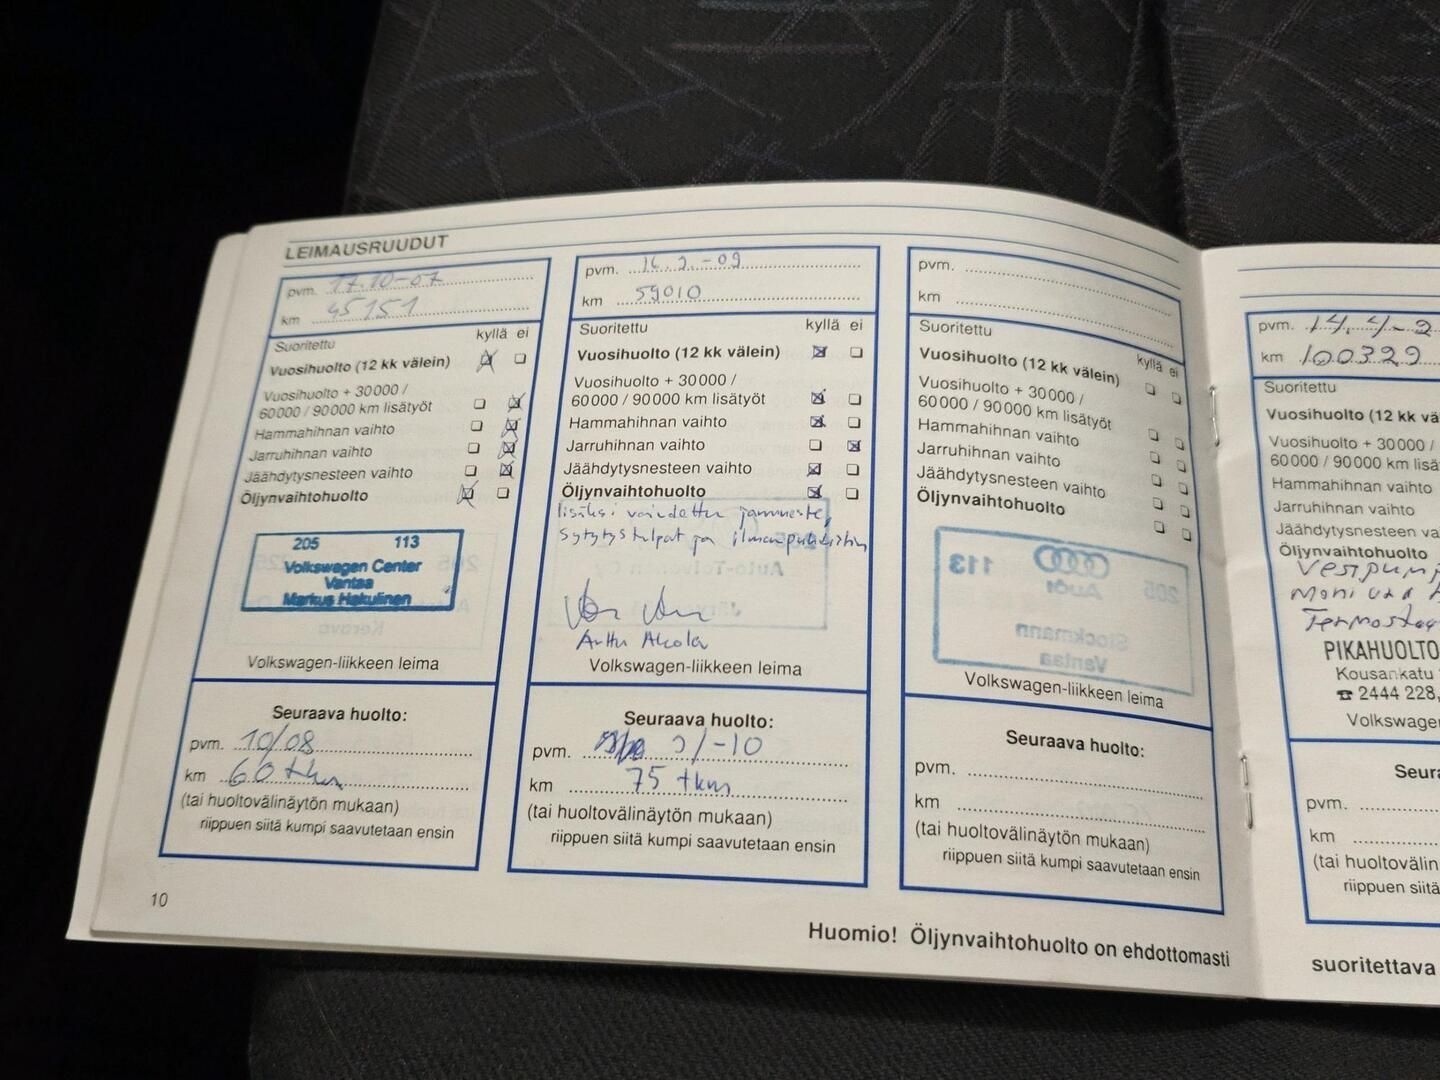 LEIMAUSRUUDUT
pvm. 17.10-07
km 45151
Suoritettu kyllä ei
Vuosihuolto (12 kk välein)
Vuosihuolto + 30 000 /
60 000 / 90 000 km lisätyöt
Hammahihnan vaihto
Jarruhihnan vaihto
Jäähdytysnesteen vaihto
Öljynvaihtohuolto
205 113
Volkswagen Center
Vantaa
Markus Hakulinen
Volkswagen-liikkeen leima
Seuraava huolto:
pvm. 10/08
km 60 tkm
(tai huoltovälinäytön mukaan)
riippuen siitä kumpi saavutetaan ensin
10
pvm. -09
km 59010
Suoritettu kyllä ei
Vuosihuolto (12 kk välein)
Vuosihuolto + 30 000 /
60 000 / 90 000 km lisätyöt
Hammahihnan vaihto
Jarruhihnan vaihto
Jäähdytysnesteen vaihto
Öljynvaihtohuolto
lisäksi vaihdettu jarruneste,
sytytystulpat ja ilmanpuhdistin
Volkswagen-liikkeen leima
Seuraava huolto:
pvm. 2/-10
km 75 tkm
(tai huoltovälinäytön mukaan)
riippuen siitä kumpi saavutetaan ensin
pvm.
km
Suoritettu
kyllä ei
Vuosihuolto (12 kk välein)
Vuosihuolto + 30 000 /
60 000 / 90 000 km lisätyöt
Hammahihnan vaihto
Jarruhihnan vaihto
Jäähdytysnesteen vaihto
Öljynvaihtohuolto
205 113
Audi
Stockmann
Vantaa
Volkswagen-liikkeen leima
Seuraava huolto:
pvm.
km
(tai huoltovälinäytön mukaan)
riippuen siitä kumpi saavutetaan ensin
Huomio! Öljynvaihtohuolto on ehdottomasti
pvm. 14.4-2
km 100329
Suoritettu
Vuosihuolto (12 kk vä
Vuosihuolto + 30 000 /
60 000 / 90 000 km lisä
Hammahihnan vaihto
Jarruhihnan vaihto
Jäähdytysnesteen va
Öljynvaihtohuolto
Vesipump
Moniura
Termostaa
PIKAHUOLTO
Kousankatu
☎ 2444 228,
Volkswage
Seura
pvm.
km
(tai huoltovälin
riippuen siitä
suoritettava